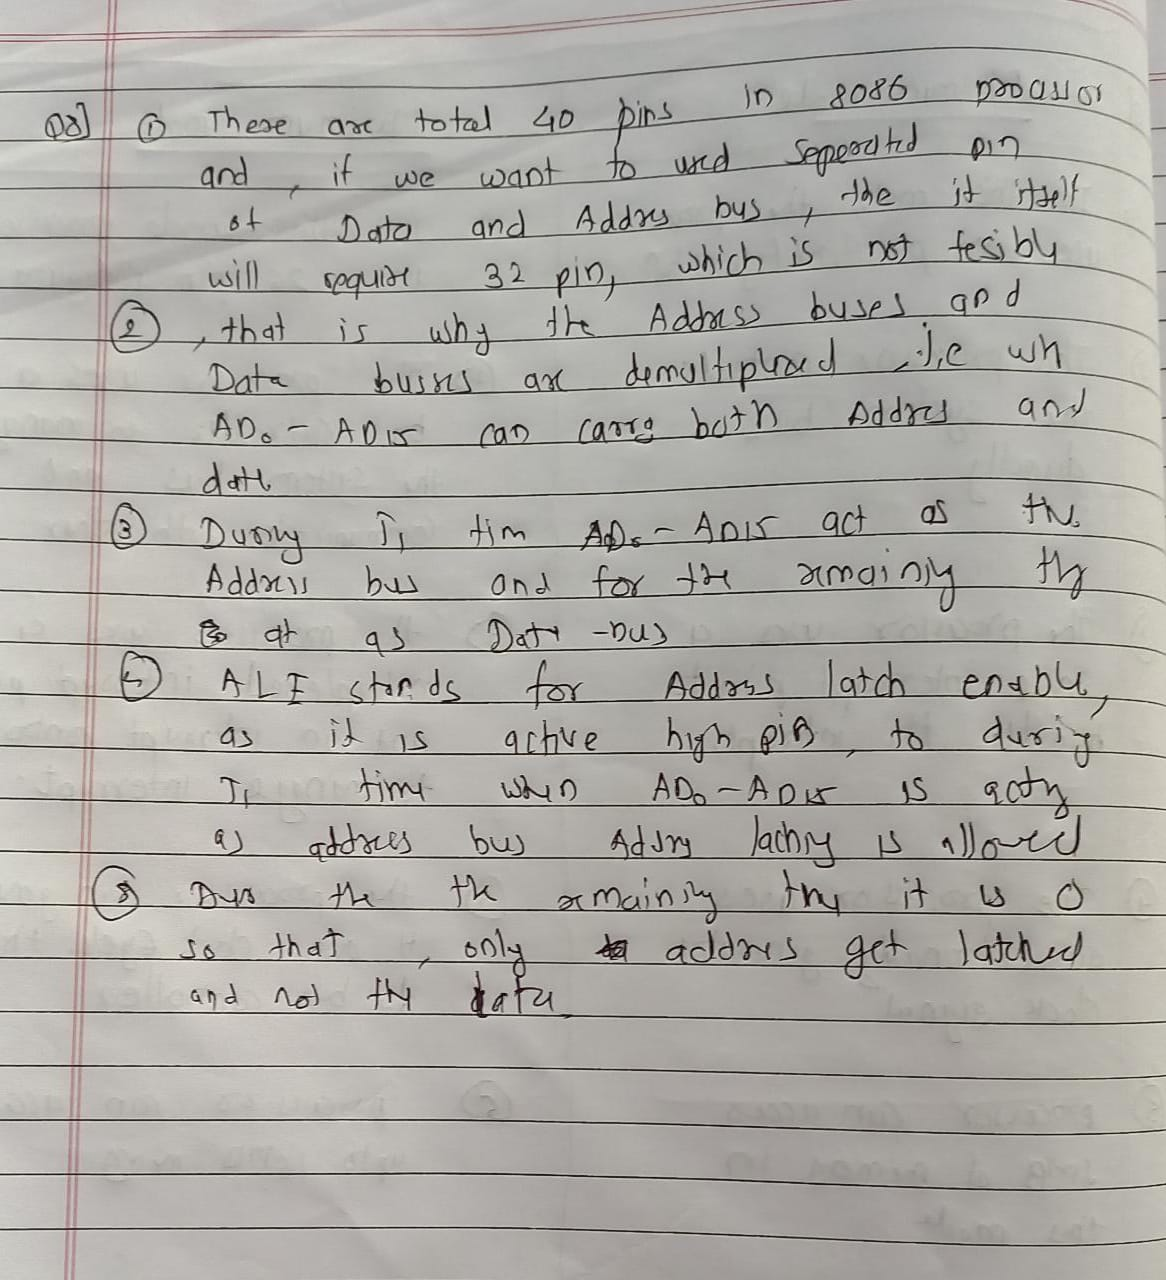 Q8] ① There are total 40 pins in 8086 processor
and , if we want to used seperated pin
of Data and Addres bus , the it itself
will require 32 pin, which is not fesibly
② , that is why the Address buses and
Data busses are demultiplexed .i.e wh
AD0 - AD15 can carry both Addres and
data
③ During T1 tim AD0 - AD15 act as the
Address bus and for the remaining
at as Data -bus
ALE stands for Address latch enable,
as it is active high pin, to during
T1 time when AD0 - AD15 is acting
as address bus Address laching is allowed
the the remaining it is 0
so that , only address get latched
and not the data